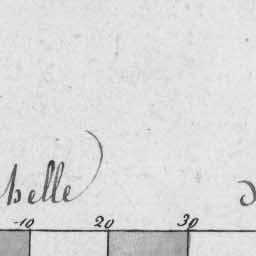 helle
10 20 30